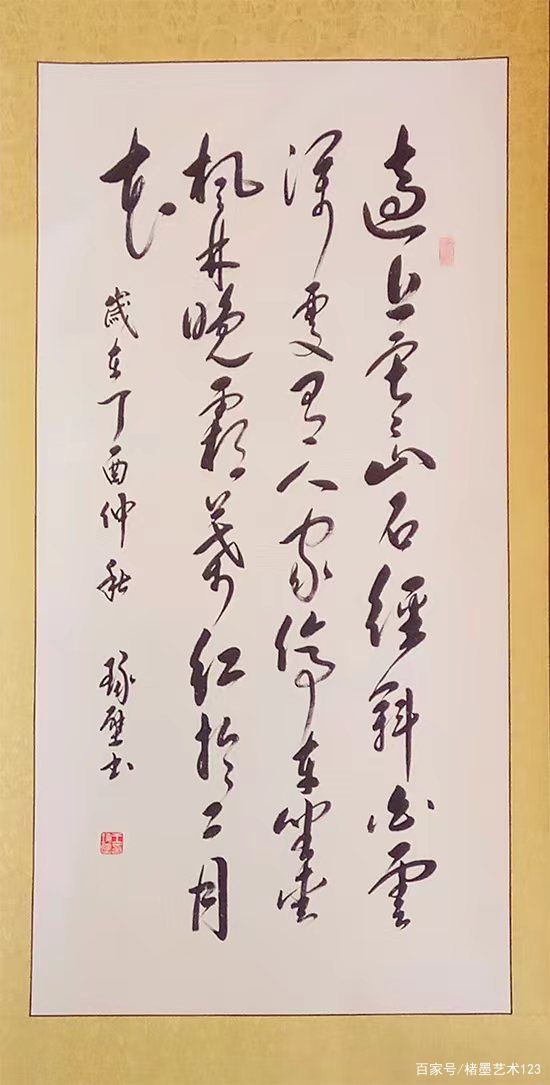 遠上寒山石徑斜白雲
深處有人家停車坐愛
楓林晚霜葉紅於二月
花
歲在丁酉仲秋 琢壁書
百家号/楮墨艺术123